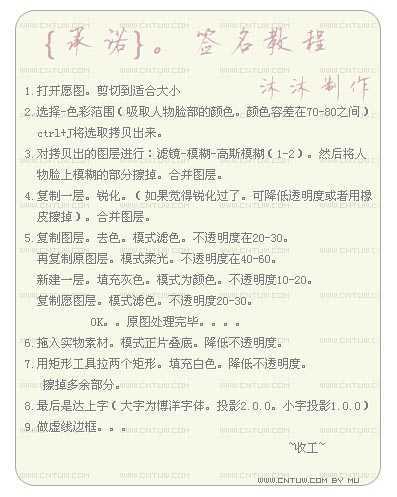 {承诺}。签名教程
沐沐制作
1.打开愿图。剪切到适合大小
2.选择-色彩范围(吸取人物脸部的颜色。颜色容差在70-80之间)
ctrl+J将选取拷贝出来。
3.对拷贝出的图层进行：滤镜-模糊-高斯模糊(1-2)。然后将人
物脸上模糊的部分擦掉。合并图层。
4.复制一层。锐化。(如果觉得锐化过了。可降低透明度或者用橡
皮擦掉)。合并图层。
5.复制图层。去色。模式滤色。不透明度在20-30。
再复制原图层。模式柔光。不透明度在40-60。
新建一层。填充灰色。模式为颜色。不透明度10-20。
复制愿图层。模式滤色。不透明度20-30。
OK。。原图处理完毕。。。。
6.拖入实物素材。模式正片叠底。降低不透明度。
7.用矩形工具拉两个矩形。填充白色。降低不透明度。
擦掉多余部分。
8.最后是达上字(大字为博洋字体。投影2.0.0。小字投影1.0.0)
9.做虚线边框。。。
~收工~
WWW.CNTUW.COM BY MU